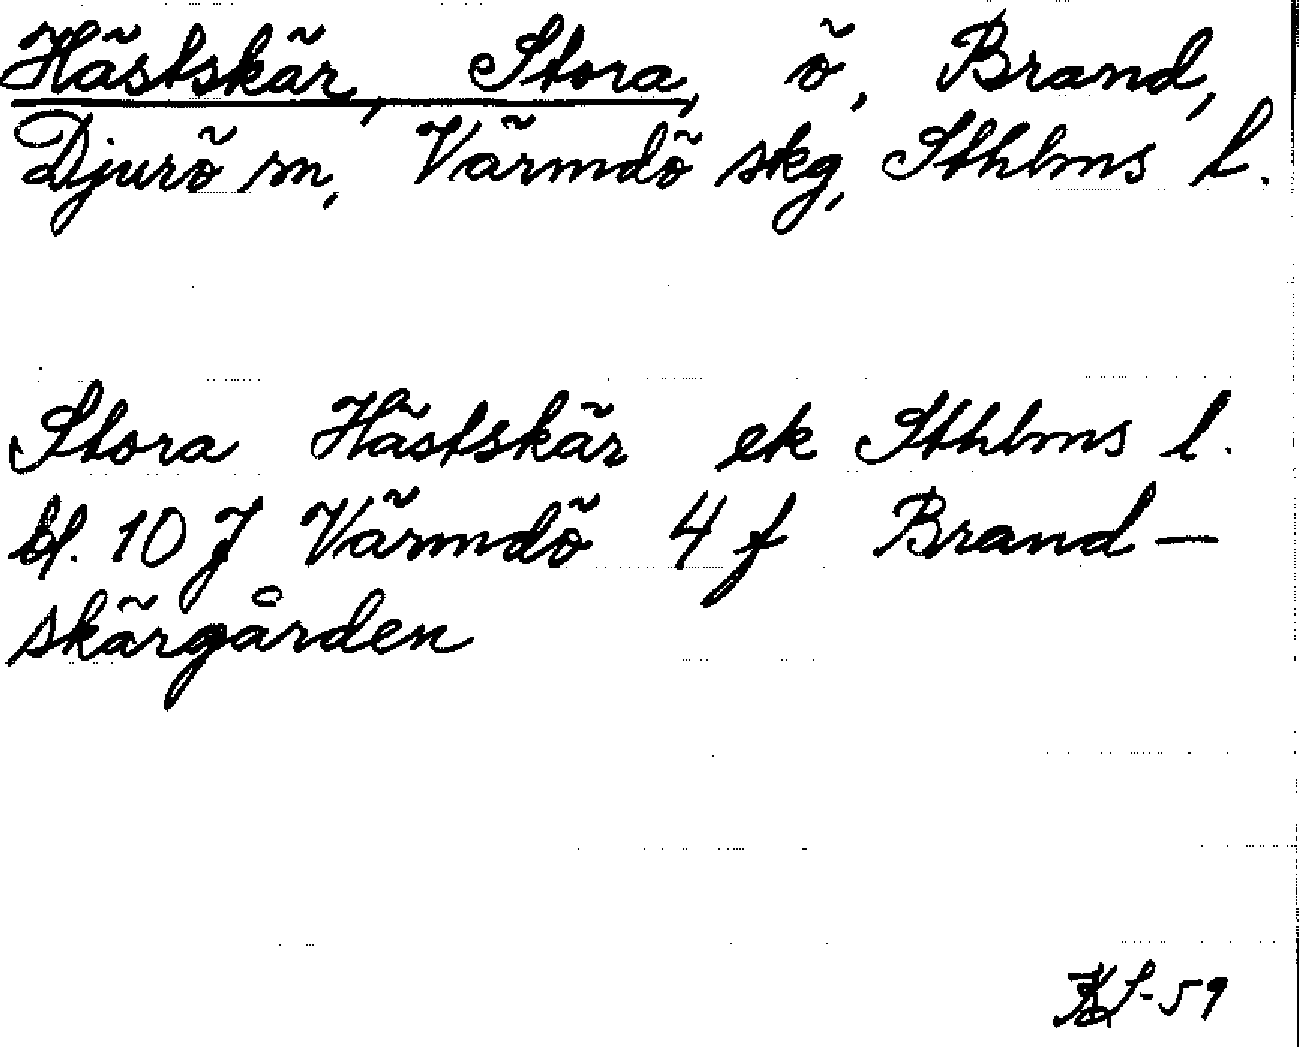 Hästskär, Stora, ö, Brand,
Djurö sn, Värmdö skg, Sthlms l.
Stora Hästskär ek Sthlms l.
bl. 10 J Värmdö 4 f Brand—
skärgården
-59